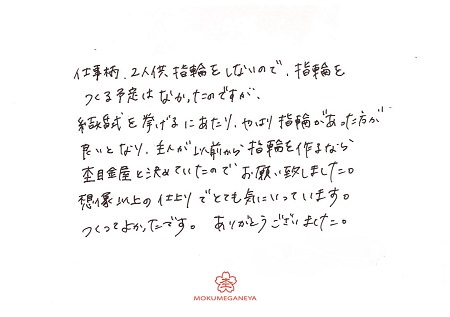 仕事柄、2人供指輪をしないので、指輪を
つくる予定はなかったのですが、
結婚式を挙げるにあたり、やはり指輪があった方が
良いとなり、主人が以前から指輪を作るなら
杢目金屋と決めていたのでお願い致しました。
想像以上の仕上りでとても気にいっています。
つくってよかったです。 ありがとうございました。
MOKUMEGANEYA